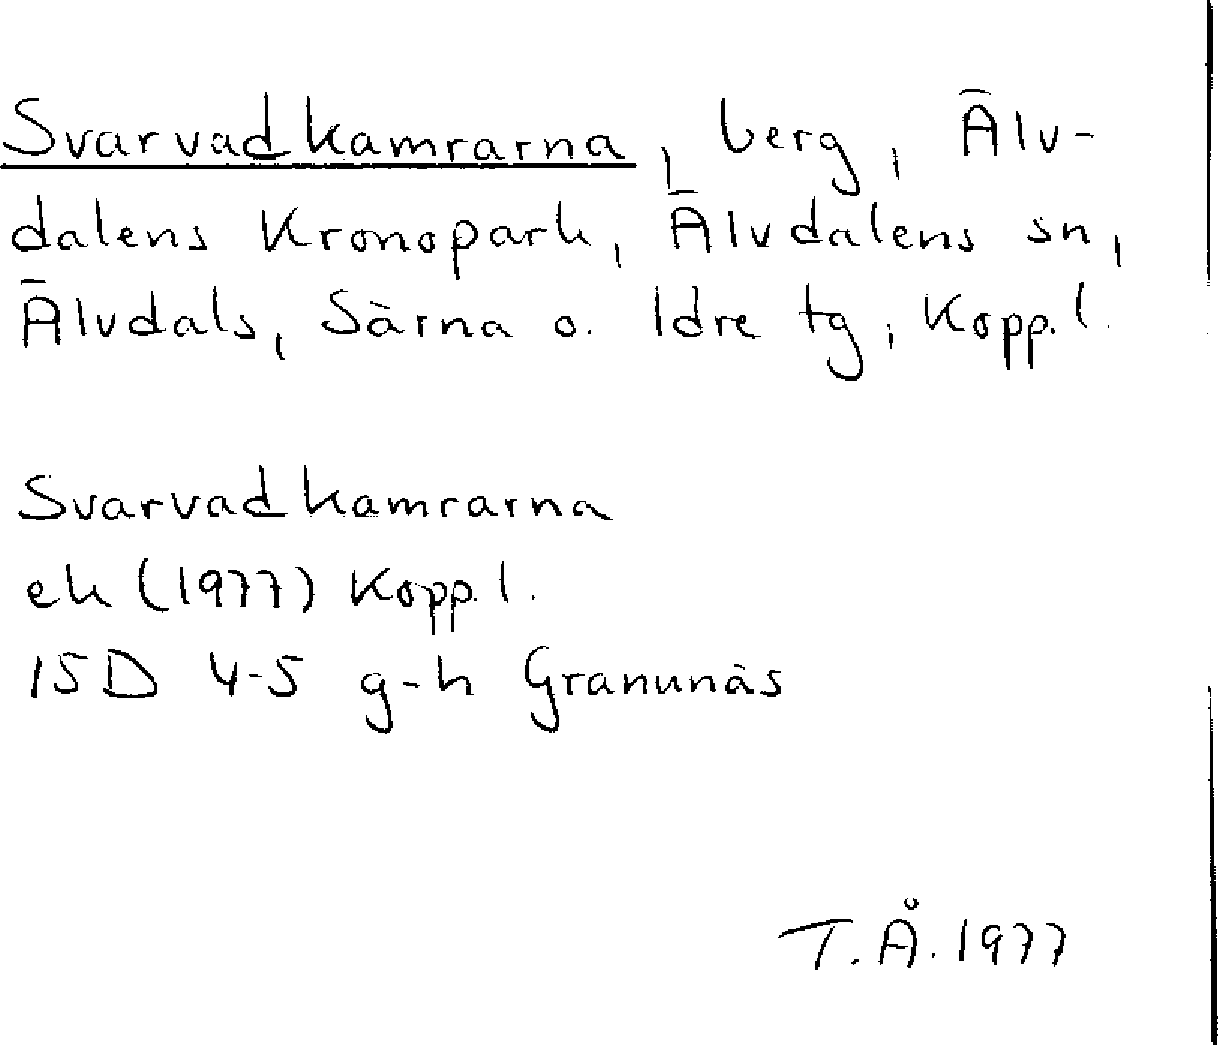 Svarvadkamrarna, berg, Älv-
dalens Kronopark, Älvdalens sn,
Älvdals, Särna o. Idre tg, Kopp. l.
Svarvadkamrarna
ek (1977) Kopp. l.
15D 4-5 g-h Granunäs
T.Å. 1977